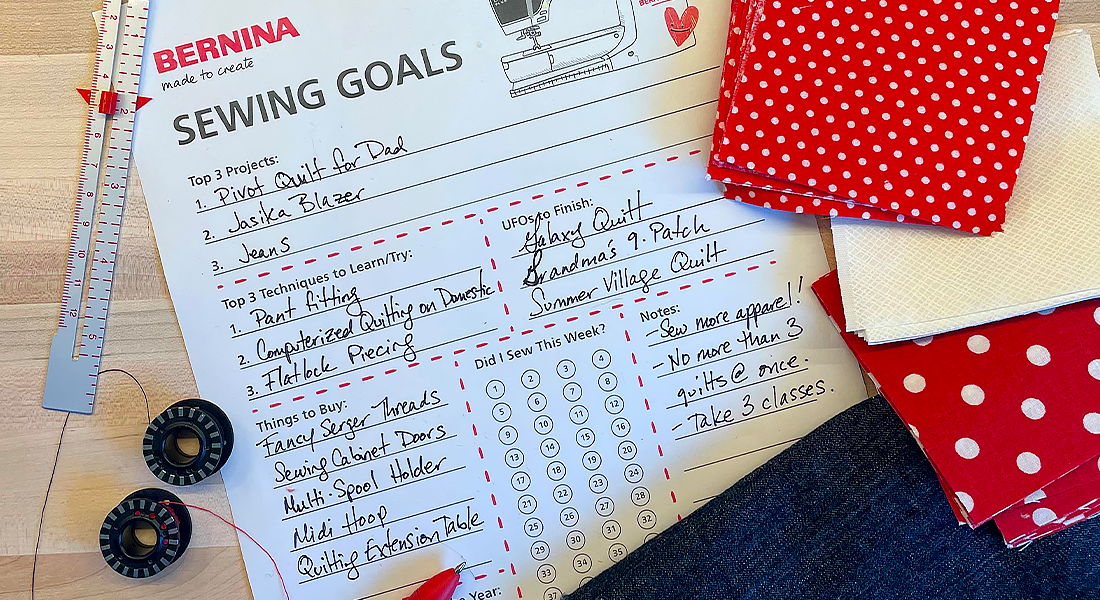 BERNINA
made to create
SEWING GOALS
Top 3 Projects:
1. Pivot Quilt for Dad
2. Jasika Blazer
3. Jeans
Top 3 Techniques to Learn/Try:
1. Pant fitting
2. Computerized Quilting on Domestic
3. Flatlock Piecing
UFOs to Finish:
Galaxy Quilt
Grandma's 9-Patch
Summer Village Quilt
Things to Buy:
Fancy Serger Threads
Sewing Cabinet Doors
Multi-Spool Holder
Midi Hoop
Quilting Extension Table
Did I Sew This Week?
1 2 3 4
5 6 7 8
9 10 11 12
13 14 15 16
17 18 19 20
21 22 23 24
25 26 27 28
29 30 31 32
33 34 35
37
Notes:
- Sew more apparel!
- No more than 3
quilts @ once.
- Take 3 classes.
Year: